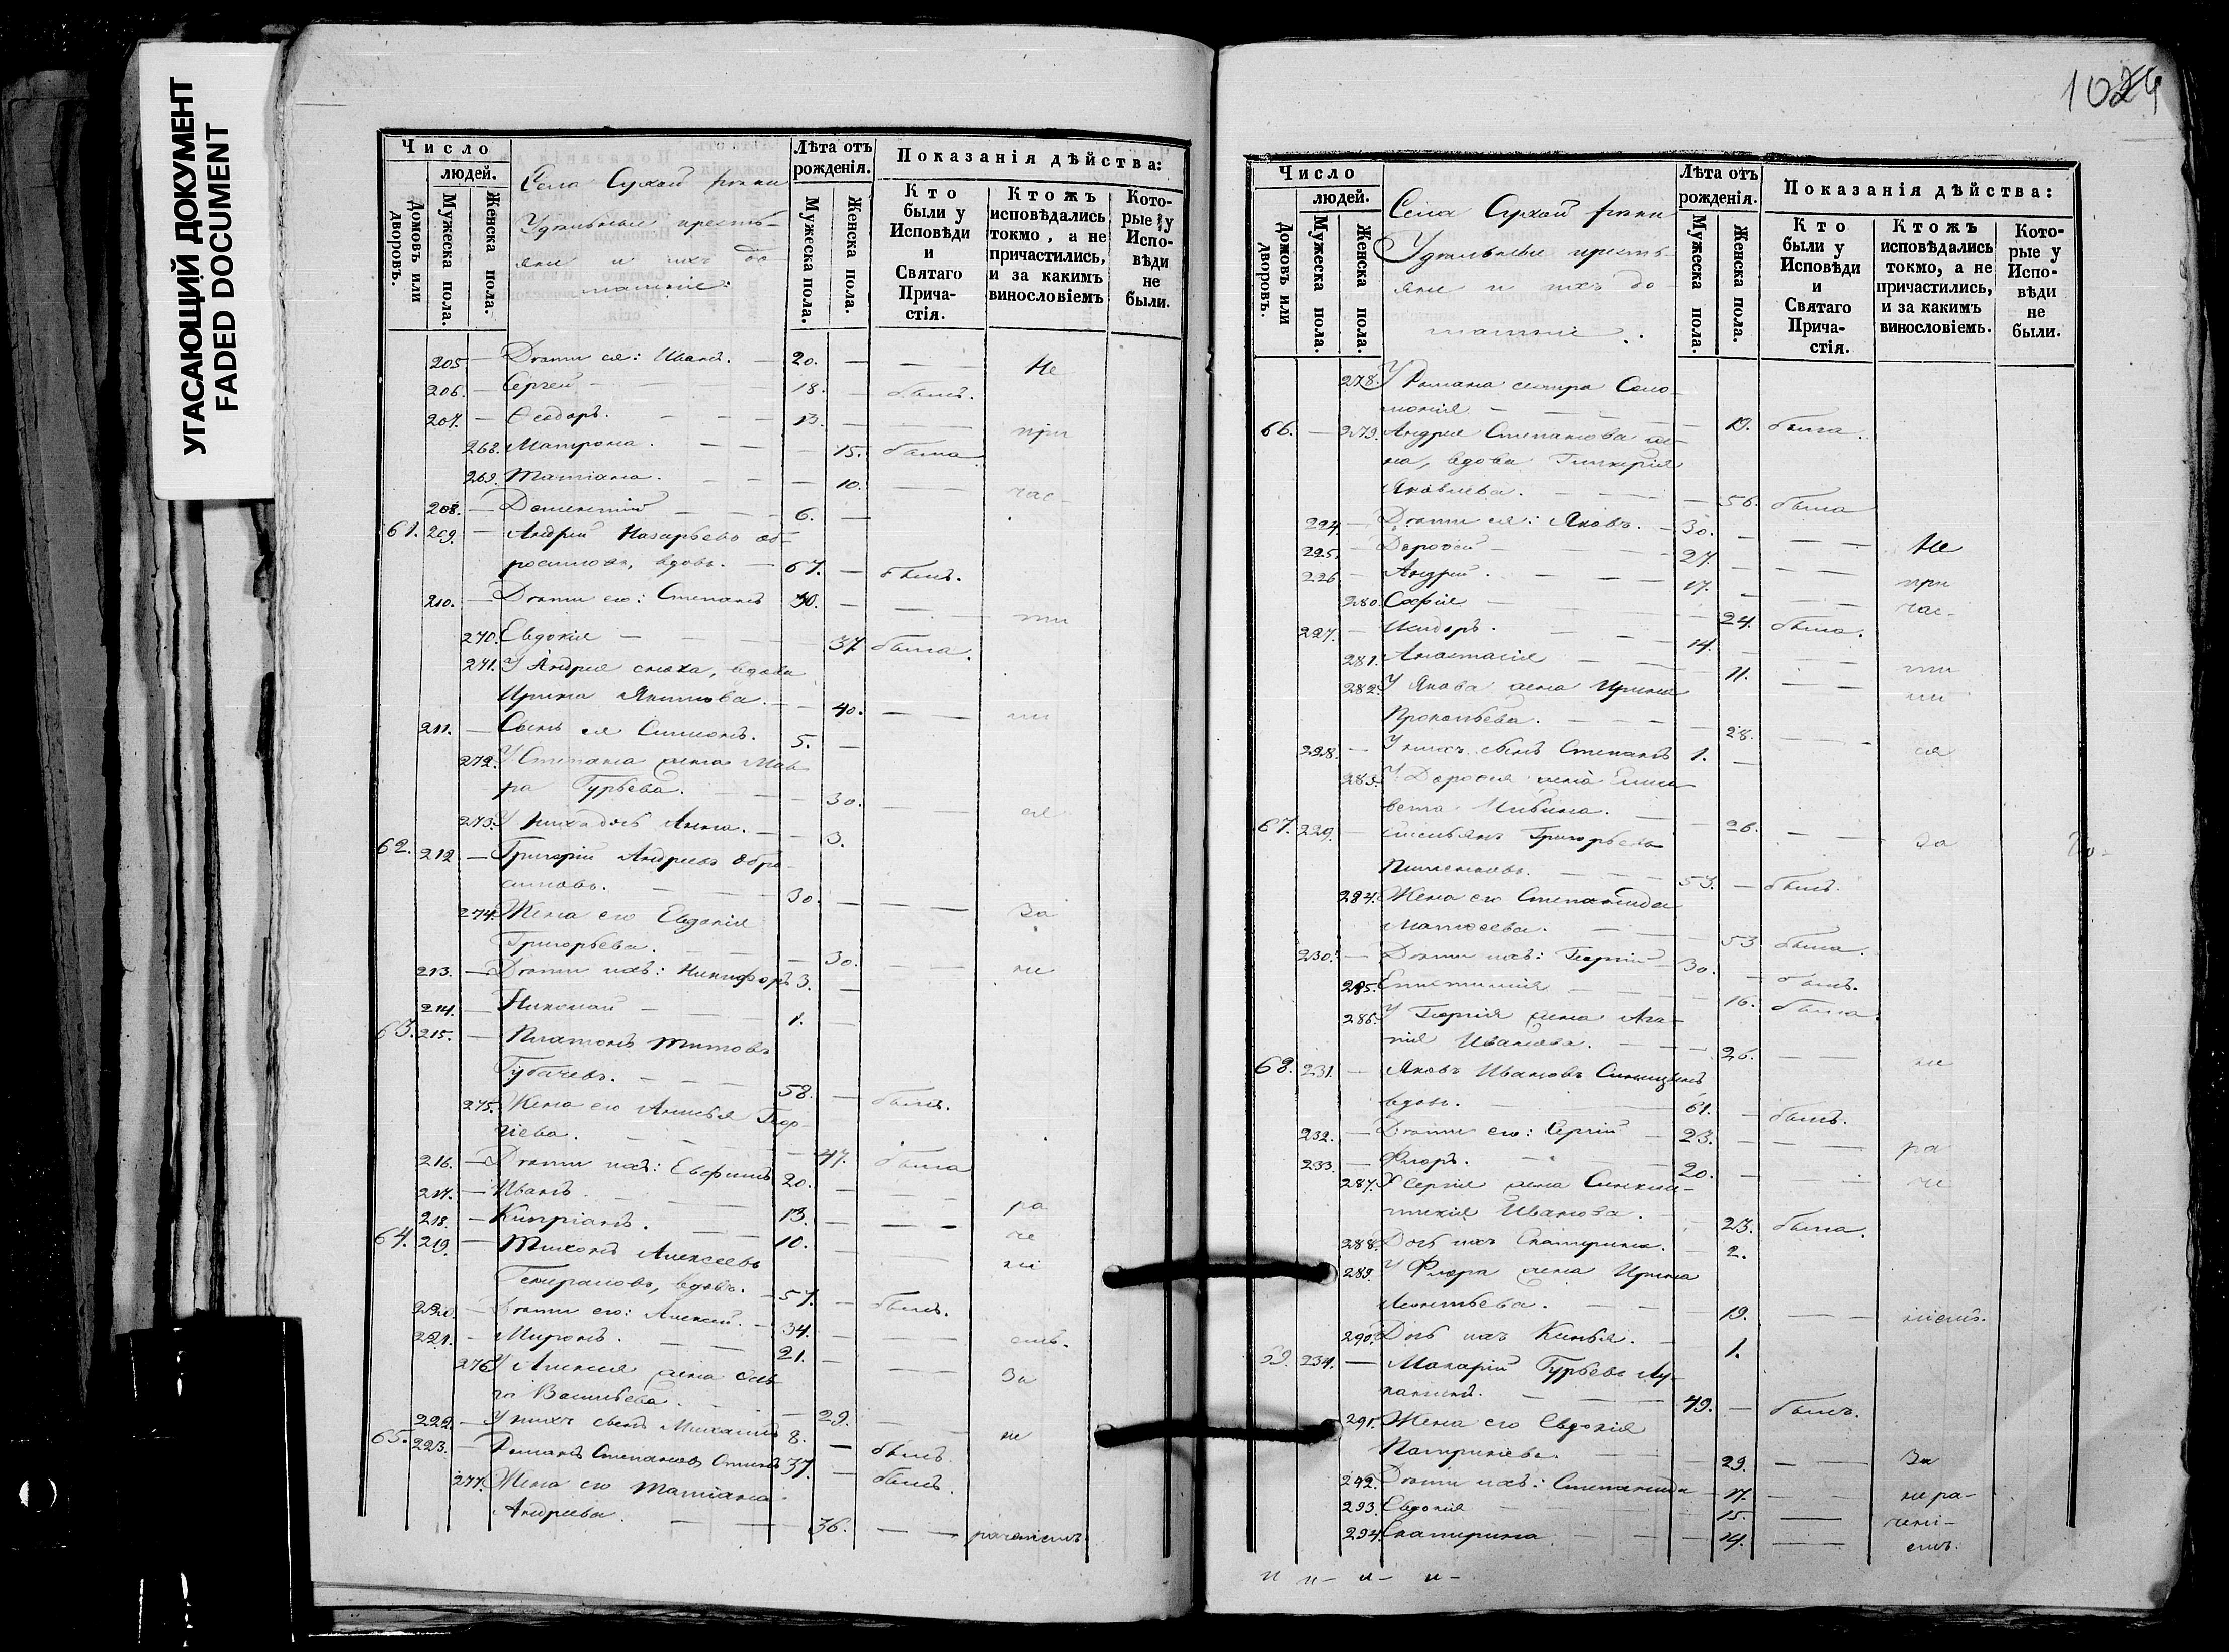 УГАСАЮЩИЙ ДОКУМЕНТ
FADED DOCUMENT
Число
людей.
Домовъ или дворовъ.
Мужеска пола.
Женска пола.
Села Сухой
Удѣльные кресть-
яне и ихъ до-
машніе:
Лѣта отъ рожденія.
Мужеска пола.
Женска пола.
Показанія дѣйства:
Кто были у Исповѣди и Святаго Прича- стія.
Ктожъ исповѣдались токмо, а не причастились, и за какимъ винословіемъ
Кото- рые у Испо- вѣди не были.
205 — Дѣти ея: Иванъ. — 20. — — — Не
206. — Сергей — 18. — былъ.
207. — Ѳеодоръ. — — — 13. — при
268. Матрона. — — — 15. была
269. Татіана. — — — 10. — — час-
208. — Дометій — — 6. —
61. 209. — Андрей Назарьевъ
вдовъ. — 67. — былъ.
210. — Дѣти его: Степанъ 30. — — ти
270. Евдокія — — — 37. была.
271. У Андрея сноха, вдова
Ирина — 40. — — ли
211. — Сынъ ея Симеонъ. 5. —
272. У Степана жена Мав-
ра Гурьева. — — 30. — — ся
273. У нихъ дочь Анна. — — 3.
62. 212 — Григорій Андреевъ Обро-
симовъ. — — 30. — — — За
274. Жена его Евдокія
Григорьева. — — 30. — — не
213. — Дѣти ихъ: Никифоръ 3. —
214. — Николай — — 1. —
63. 215. — Платонъ Титовъ
Губачевъ. — — 58. — былъ.
275. Жена его Анисья Геор-
гіева. — — — 47. была
216. — Дѣти ихъ: Евфимъ 20. — — ра
217. — Иванъ. — — 13. — — — че
218. — Кипріанъ. — — 10. — ні
64. 219. — Тихонъ Алексеевъ
вдовъ. — 57. — былъ.
220. — Дѣти его: Алексей. — 34. — — — емъ.
221. — Миронъ. — — 21. — — За
276. У Алексея жена
Васильева. — — 29. — — не
222. — У нихъ сынъ Михаилъ 8. — былъ
65. 223. — Романъ Степановъ 37. — былъ.
277. Жена его Татіана
Андреева. — — 36. — — раченіемъ.
1024
Число
людей.
Домовъ или дворовъ.
Мужеска пола.
Женска пола.
Села Сухой
Удѣльные кресть-
яне и ихъ до-
машніе.
Лѣта отъ рожденія.
Мужеска пола.
Женска пола.
Показанія дѣйства:
Кто были у Исповѣди и Святаго Прича- стія.
Ктожъ исповѣдались токмо, а не причастились, и за какимъ винословіемъ.
Кото- рые у Испо- вѣди не были.
278. У Романа сестра Соло-
монія — — — 19. была.
66. — 279. Андрея Степанова же-
на, вдова Гликерія
Яковлева. — — — 56. была
224. — Дѣти ея: Яковъ. — 30. — — — Не
225. — Дороѳей — — 27. — — — при
226 — Андрей. — — — 17. — — час-
280. Софія — — — 24. была.
227. — Исидоръ. — — 14. — — ти
281. Анастасія — — 11. — — ли
282. У Якова жена Ирина
Прокопьева. — — — 28. — — ся
228. — У нихъ сынъ Степанъ 1. —
283. У Дороѳея жена Елиса-
вета — 26. — — За
67. 229. — Григорьевъ
53. — былъ.
284. Жена его Степанида
Матѳеева. — — 53 была.
230. — Дѣти ихъ: Георгій — 30. — былъ.
285. — — 16. была.
286. У Георгія жена Ага-
пія Иванова. — — 26. — — не
68. 231. — Яковъ Ивановъ Синицынъ
вдовъ. — — 61. — былъ.
232. — Дѣти его: Сергій — 23. — — — ра
233. — Флоръ. — — 20. — — — че
287. У Сергія жена Синкли-
тикія Иванова. — — 23. была.
288. Дочь ихъ Екатерина. — 2.
289. У Флора жена Ирина
Леонтьева. — — — 19. — — ніемъ.
290. Дочь ихъ — 1.
69. 234. — Макарій Гурьевъ
49. — былъ.
291. Жена его Евдокія
Патрикіева. — — 29. — — За
292. Дѣти ихъ: Степанида — 17. — не ра-
293. Евдокія — — 15. — чені-
294. Екатерина — — — 14. — емъ.